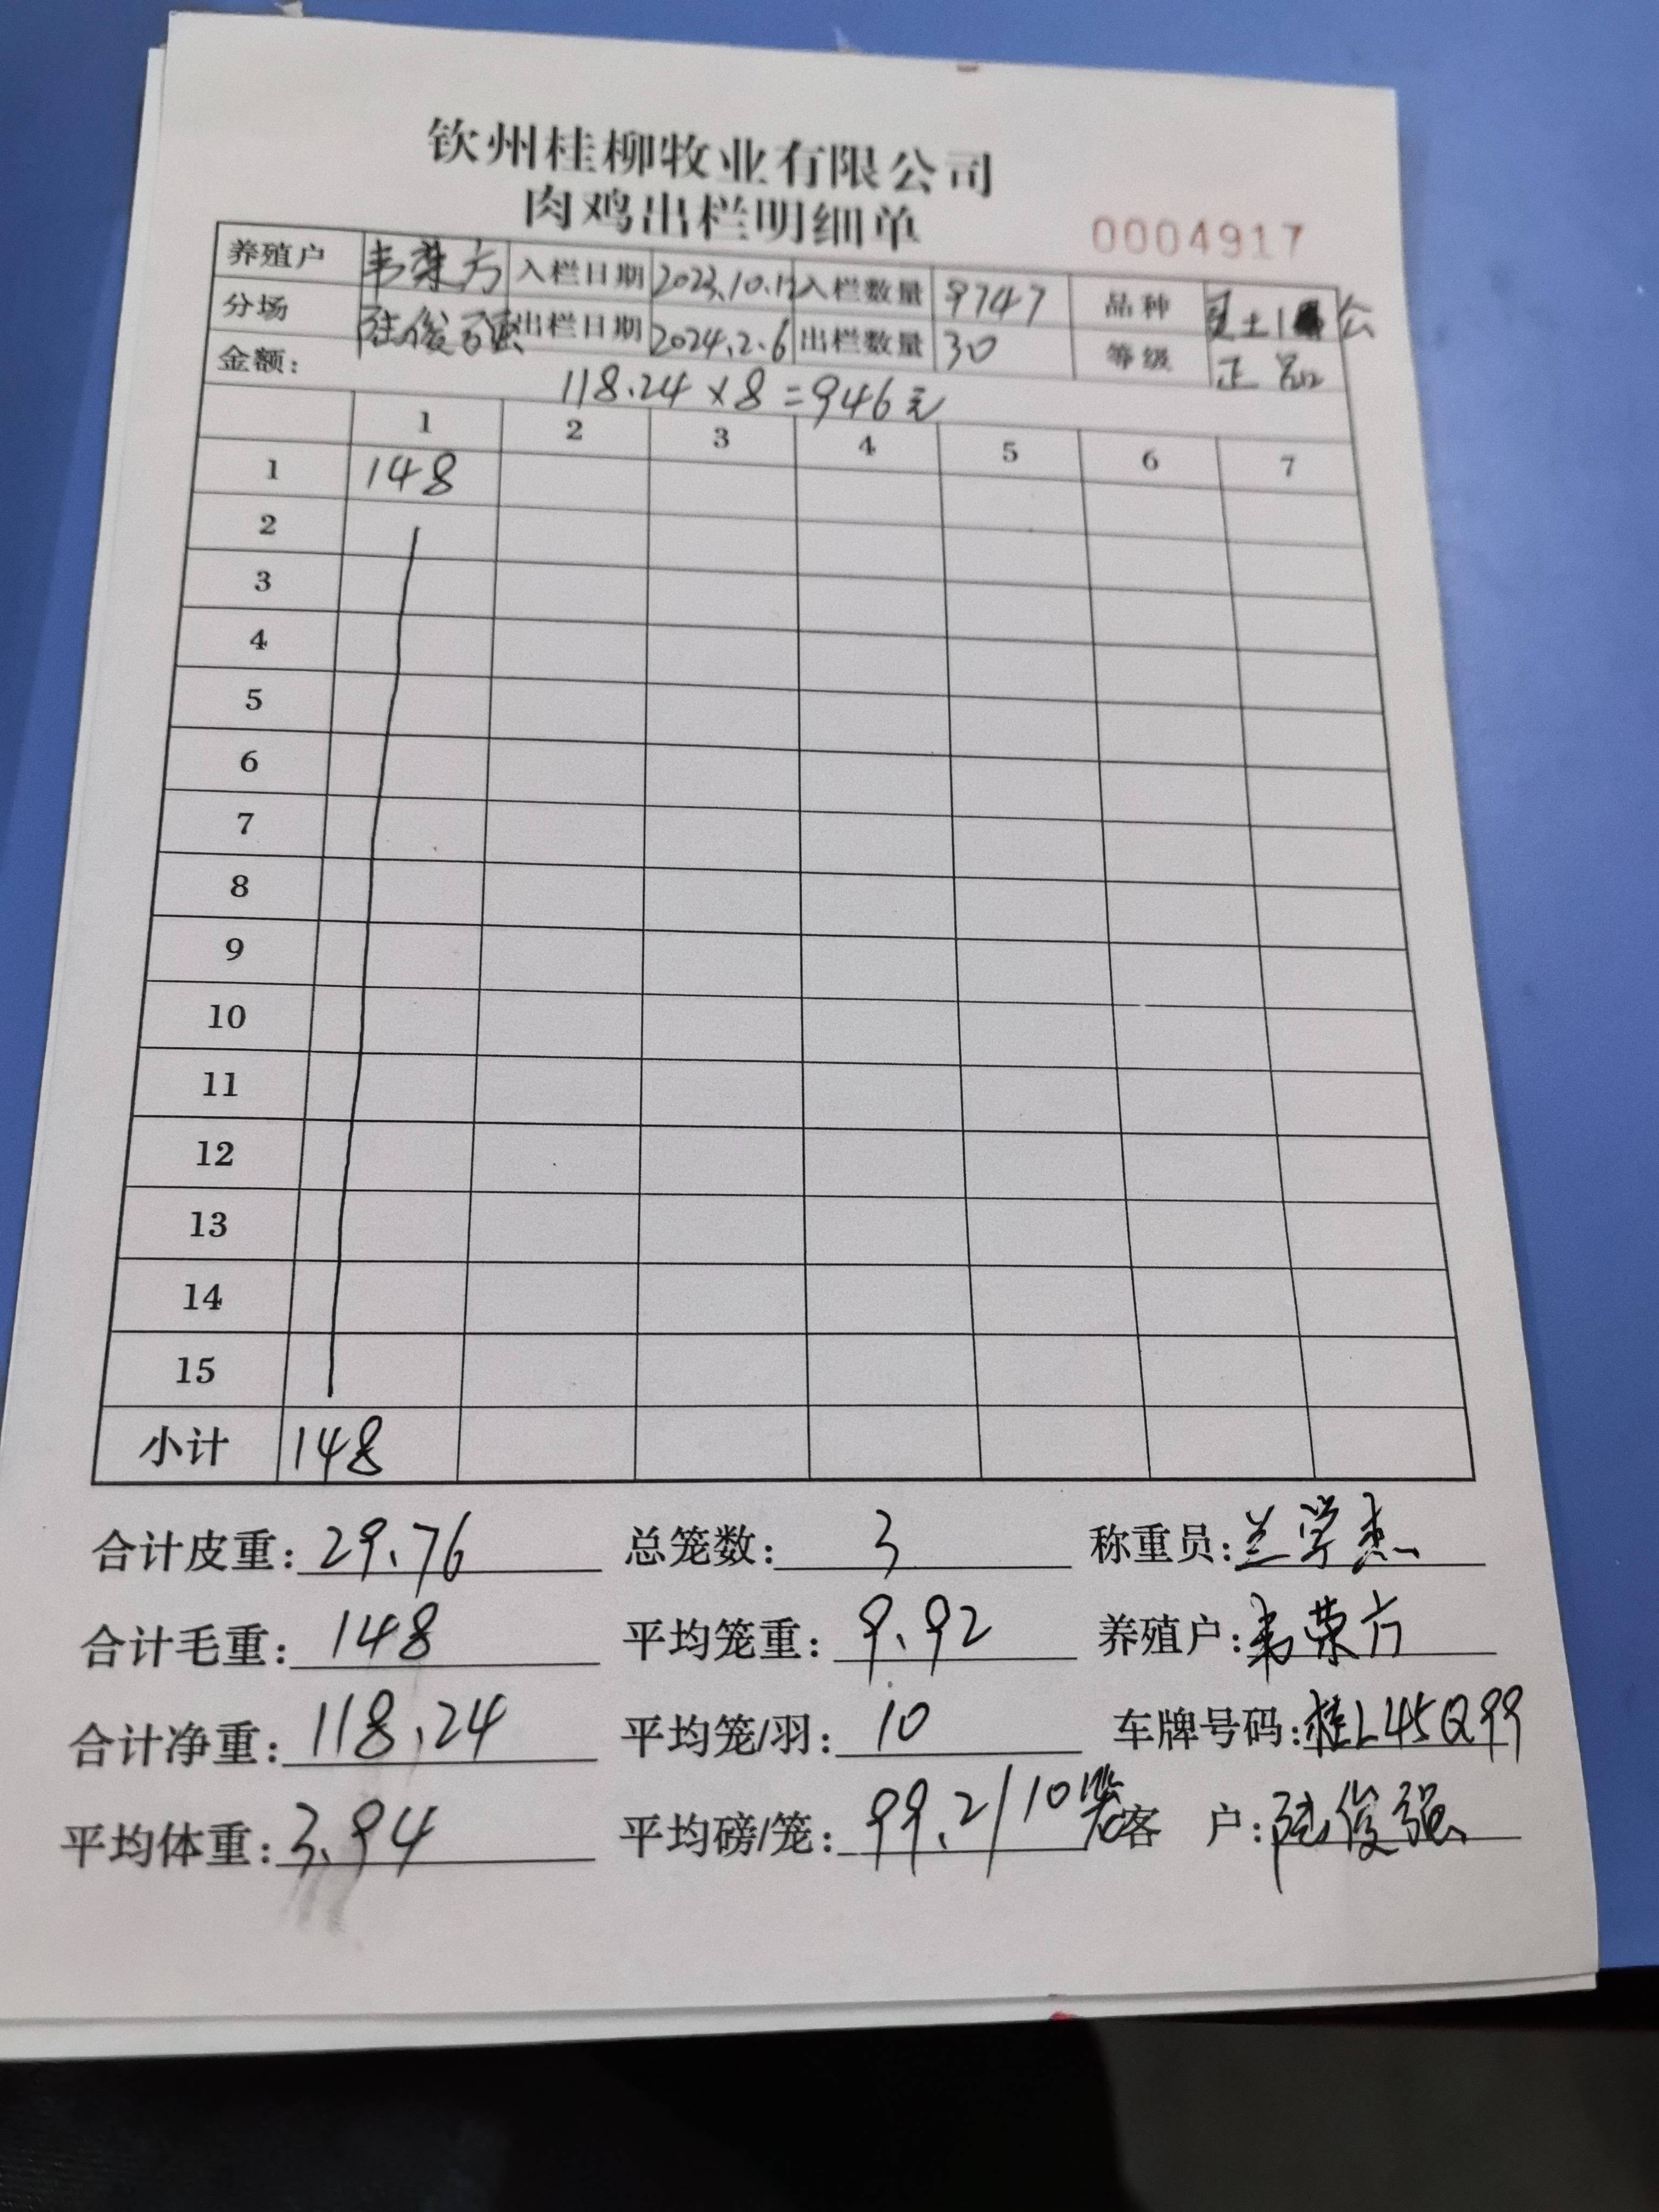 钦州桂柳牧业有限公司
肉鸡出栏明细单
0004917
养殖户 韦荣方 入栏日期 2023.10.12 入栏数量 9747 品种 土1 公
分场 陆俊强 出栏日期 2024.2.6 出栏数量 30 等级 正品
金额: 118.24×8=946元
1 2 3 4 5 6 7
1 148
2
3
4
5
6
7
8
9
10
11
12
13
14
15
小计 148
合计皮重: 29.76 总笼数: 3 称重员: 兰学杰
合计毛重: 148 平均笼重: 9.92 养殖户: 韦荣方
合计净重: 118.24 平均笼/羽: 10 车牌号码: 桂L45Q99
平均体重: 3.94 平均磅/笼: 99.2/10笼 客 户: 陆俊强